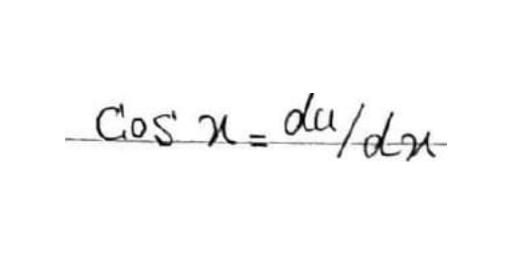 Cos x = du/dx